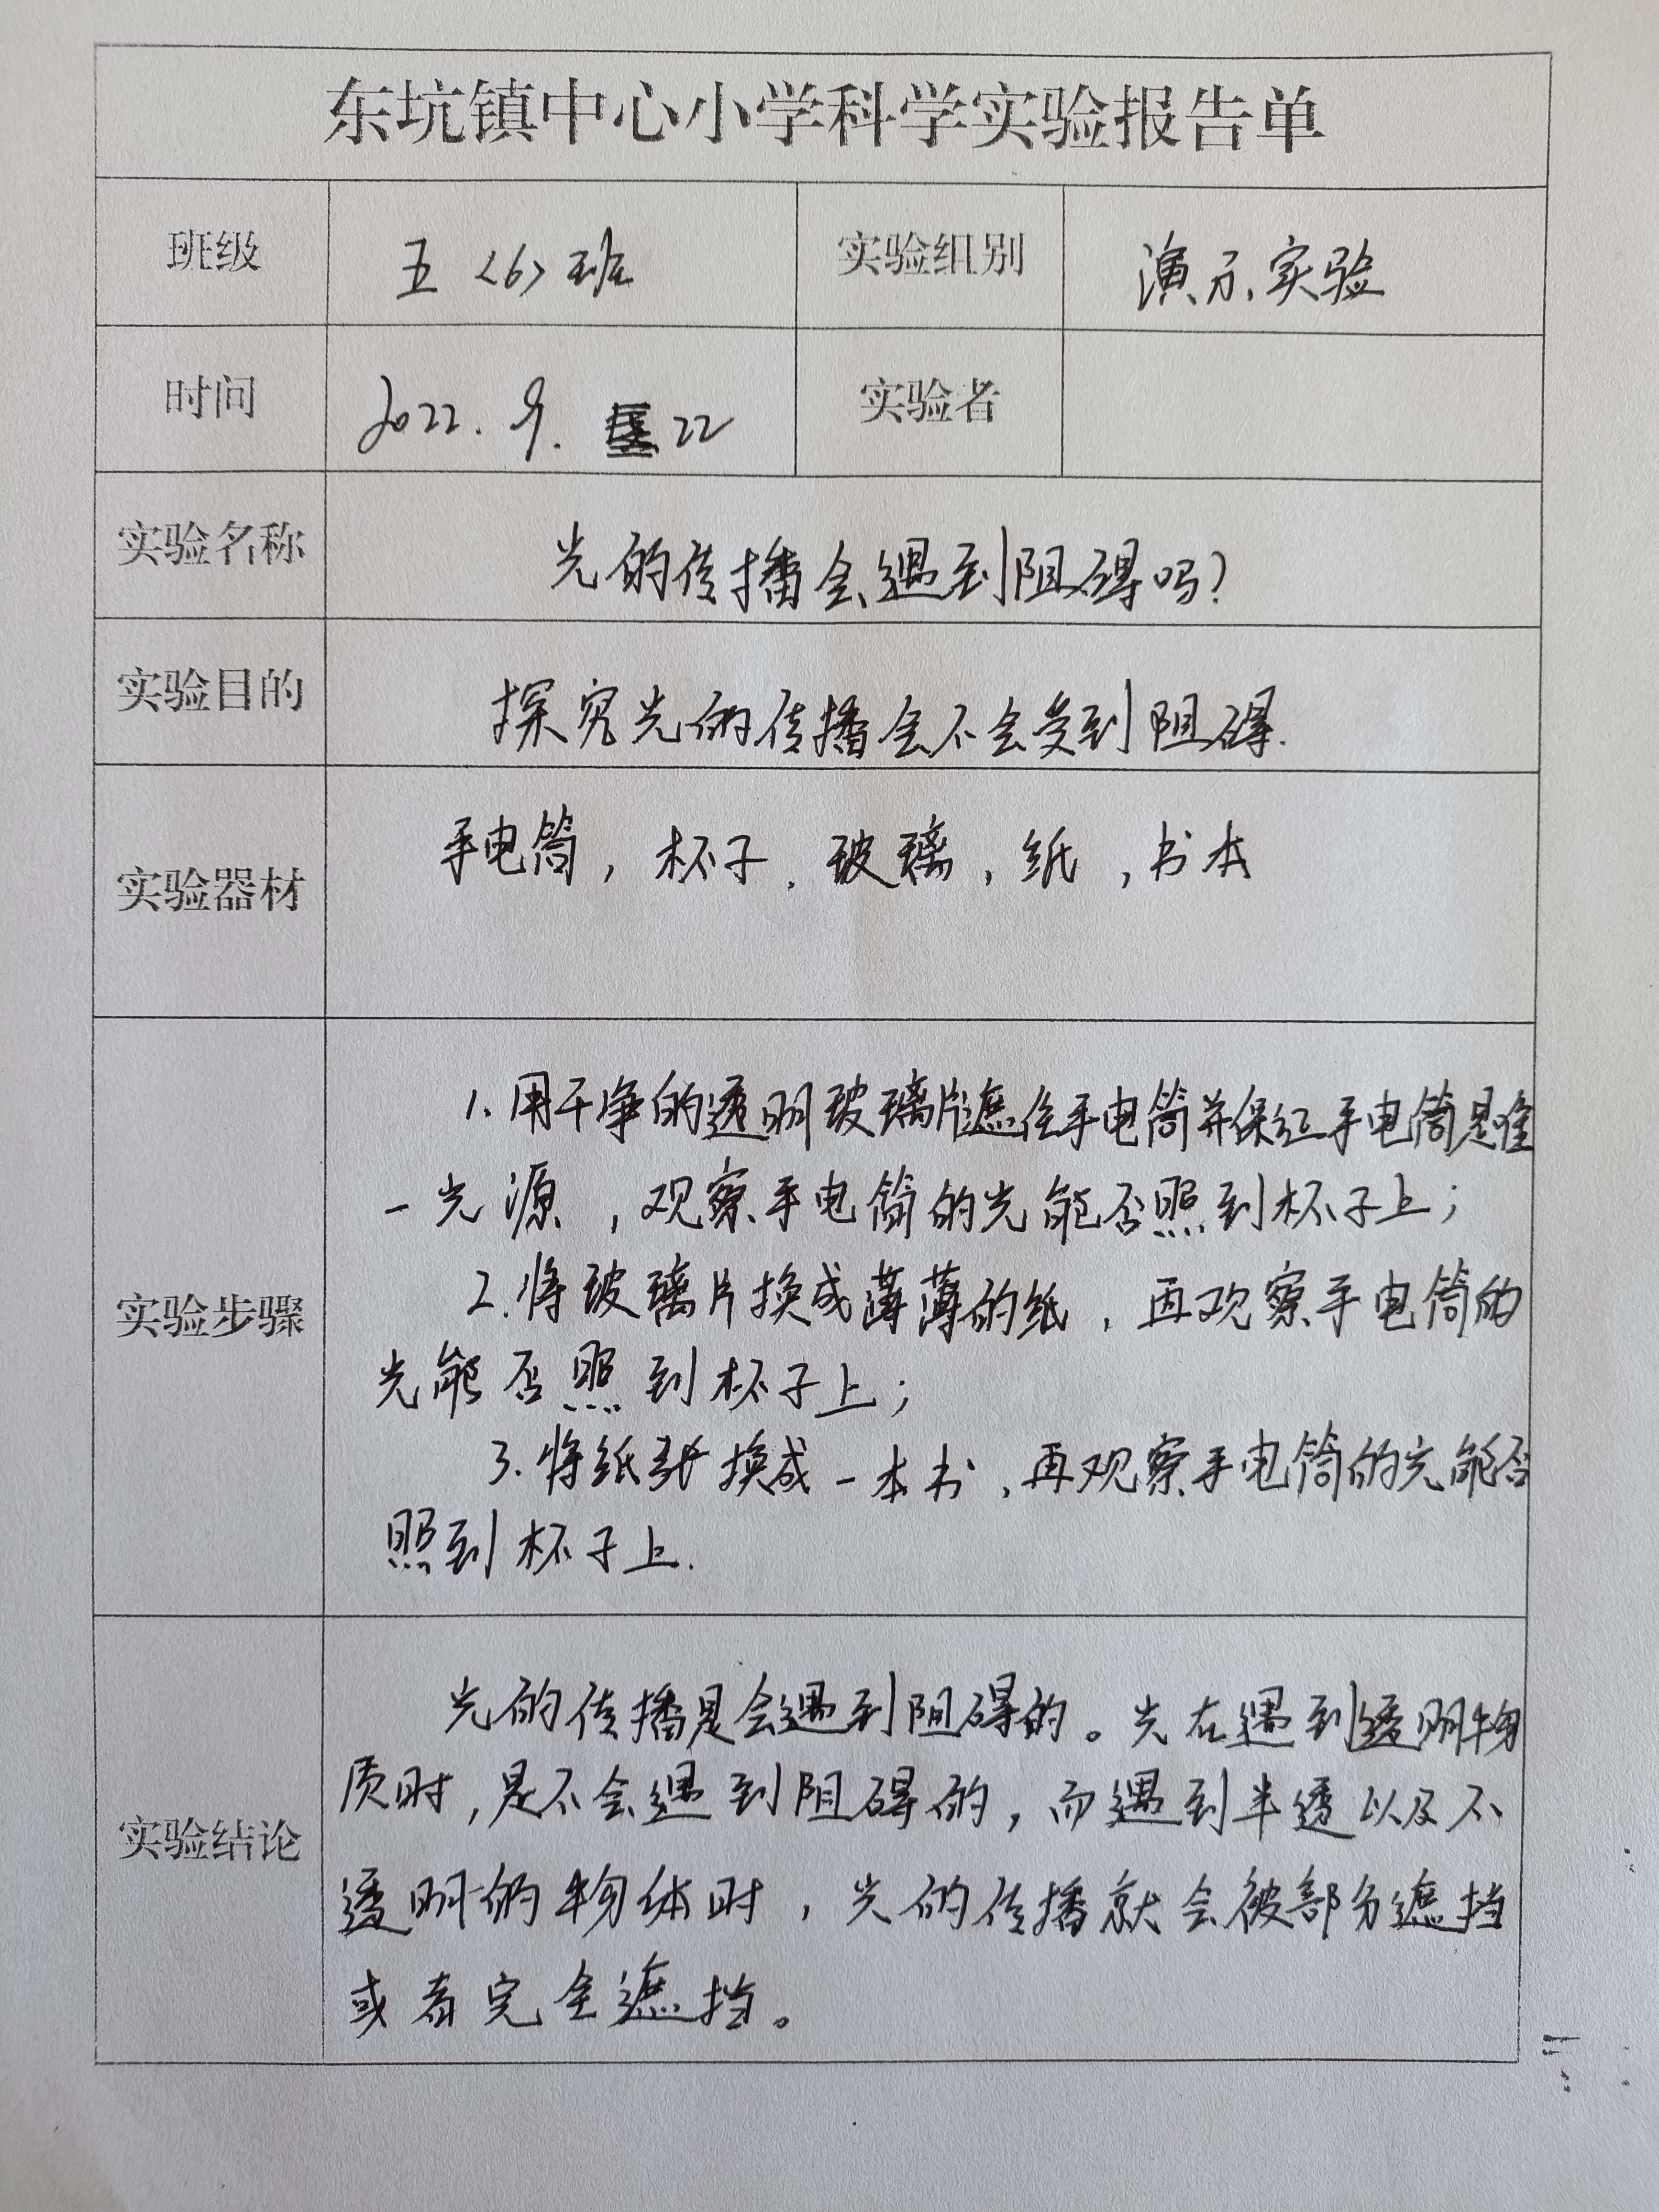 东坑镇中心小学科学实验报告单
班级 五<6>班 实验组别 演示实验
时间 2022.9. 22 实验者
实验名称 光的传播会遇到阻碍吗?
实验目的 探究光的传播会不会受到阻碍.
实验器材 手电筒,杯子,玻璃,纸,书本
实验步骤
1.用干净的透明玻璃片遮住手电筒并保证手电筒是唯
一光源,观察手电筒的光能否照到杯子上;
2.将玻璃片换成薄薄的纸,再观察手电筒的
光能否照到杯子上;
3.将纸张换成一本书,再观察手电筒的光能否
照到杯子上.
实验结论
光的传播是会遇到阻碍的。光在遇到透明物
质时,是不会遇到阻碍的,而遇到半透以及不
透明的物体时,光的传播就会被部分遮挡
或者完全遮挡。